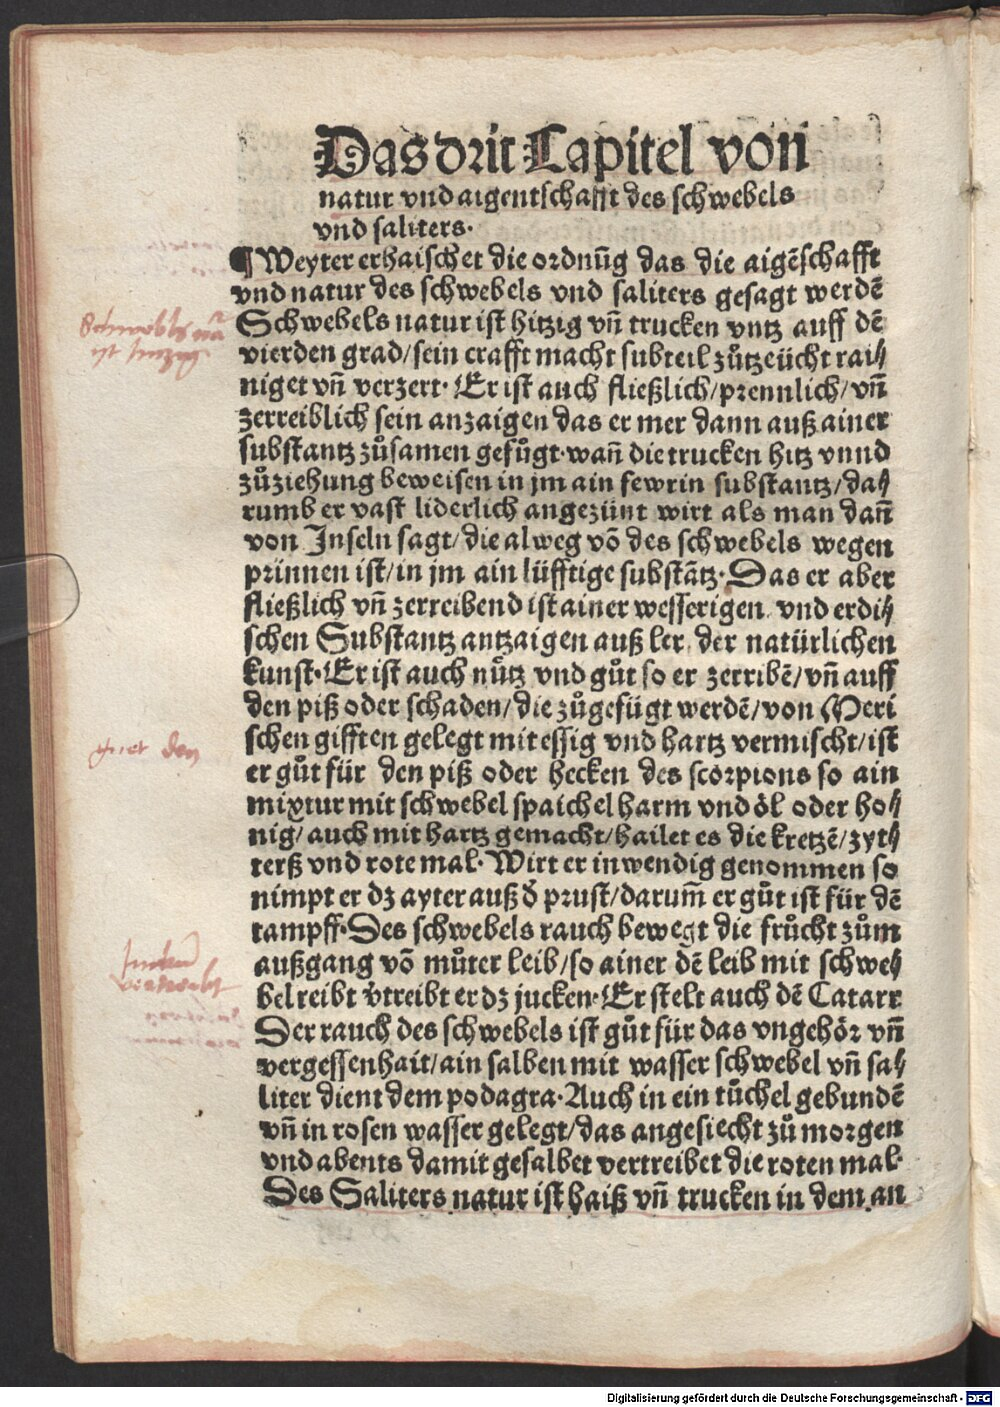 Das drit Capitel von
natur vnd aigentschafft des schwebels
vnd saliters.
¶ Weyter erhaischet die ordnūg das die aigēschafft
vnd natur des schwebels vnd saliters gesagt werdē
Schwebels natur ist hitzig vn̄ trucken vntz auff dē
vierden grad/sein crafft macht subteil zůtzeücht rai⸗
niget vn̄ verzert. Er ist auch fließlich/prennlich/vn̄
zerreiblich sein anzaigen das er mer dann auß ainer
substantz zůsamen gefůgt. wan̄ die trucken hitz vnnd
zůziehung beweisen in jm ain fewrin substantz/da⸗
rumb er vast liderlich angezünt wirt als man dan̄
von Inseln sagt/die alweg vō des schwebels wegen
prinnen ist/in jm ain lüfftige substātz. Das er aber
fließlich vn̄ zerreibend ist ainer wesserigen vnd erdi⸗
schen Substantz antzaigen auß ler der natürlichen
kunst. Er ist auch nůtz vnd gůt so er zerribē/vn̄ auff
den piß oder schaden/die zůgefügt werdē/von Meri
schen gifften gelegt mit essig vnd hartz vermischt/ist
er gůt für den piß oder hecken des scorpions so ain
mixtur mit schwebel spaichel harm vnd öl oder ho⸗
nig/auch mit hartz gemacht/hailet es die kretzē/zyt⸗
terß vnd rote mal. Wirt er inwendig genommen so
nimpt er dz ayter auß d̄ prust/darum̄ er gůt ist für dē
tampff. Des schwebels rauch bewegt die frůcht zům
außgang vō můter leib/so ainer dē leib mit schwe⸗
bel reibt v̄treibt er dz jucken. Er stelt auch dē Catarr
Der rauch des schwebels ist gůt für das vngehör vn̄
vergessenhait/ain salben mit wasser schwebel vn̄ sa⸗
liter dient dem podagra. Auch in ein tůchel gebundē
vn̄ in rosen wasser gelegt/das angesiecht zů morgen
vnd abents damit gesalbet vertreibet die roten mal.
Des Saliters natur ist haiß vn̄ trucken in dem an
Digitalisierung gefördert durch die Deutsche Forschungsgemeinschaft - DFG